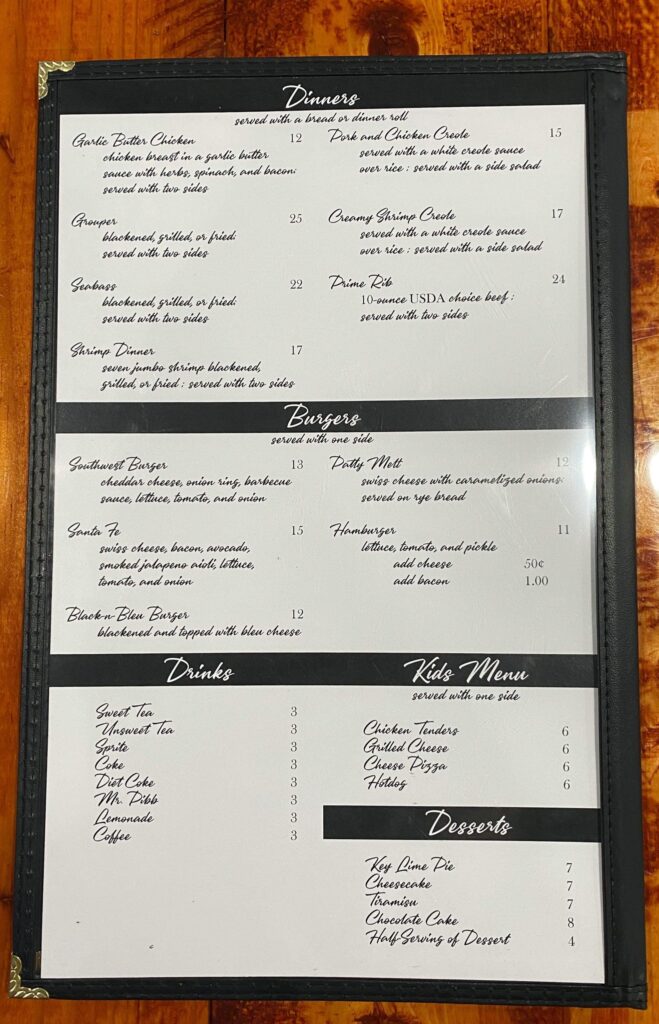 Dinners
served with a bread or dinner roll
Garlic Butter Chicken 12
chicken breast in a garlic butter
sauce with herbs, spinach, and bacon;
served with two sides
Grouper 25
blackened, grilled, or fried;
served with two sides
Seabass 22
blackened, grilled, or fried;
served with two sides
Shrimp Dinner 17
seven jumbo shrimp blackened,
grilled, or fried ; served with two sides
Pork and Chicken Creole 15
served with a white creole sauce
over rice ; served with a side salad
Creamy Shrimp Creole 17
served with a white creole sauce
over rice ; served with a side salad
Prime Rib 24
10-ounce USDA choice beef ;
served with two sides
Burgers
served with one side
Southwest Burger 13
cheddar cheese, onion ring, barbecue
sauce, lettuce, tomato, and onion
Santa Fe 15
swiss cheese, bacon, avocado,
smoked jalapeno aioli, lettuce,
tomato, and onion
Black-n-Bleu Burger 12
blackened and topped with bleu cheese
Patty Melt 12
swiss cheese with caramelized onions;
served on rye bread
Hamburger 11
lettuce, tomato, and pickle
add cheese 50¢
add bacon 1.00
Drinks
Sweet Tea 3
Unsweet Tea 3
Sprite 3
Coke 3
Diet Coke 3
Mr. Pibb 3
Lemonade 3
Coffee 3
Kids Menu
served with one side
Chicken Tenders 6
Grilled Cheese 6
Cheese Pizza 6
Hotdog 6
Desserts
Key Lime Pie 7
Cheesecake 7
Tiramisu 7
Chocolate Cake 8
Half-Serving of Dessert 4